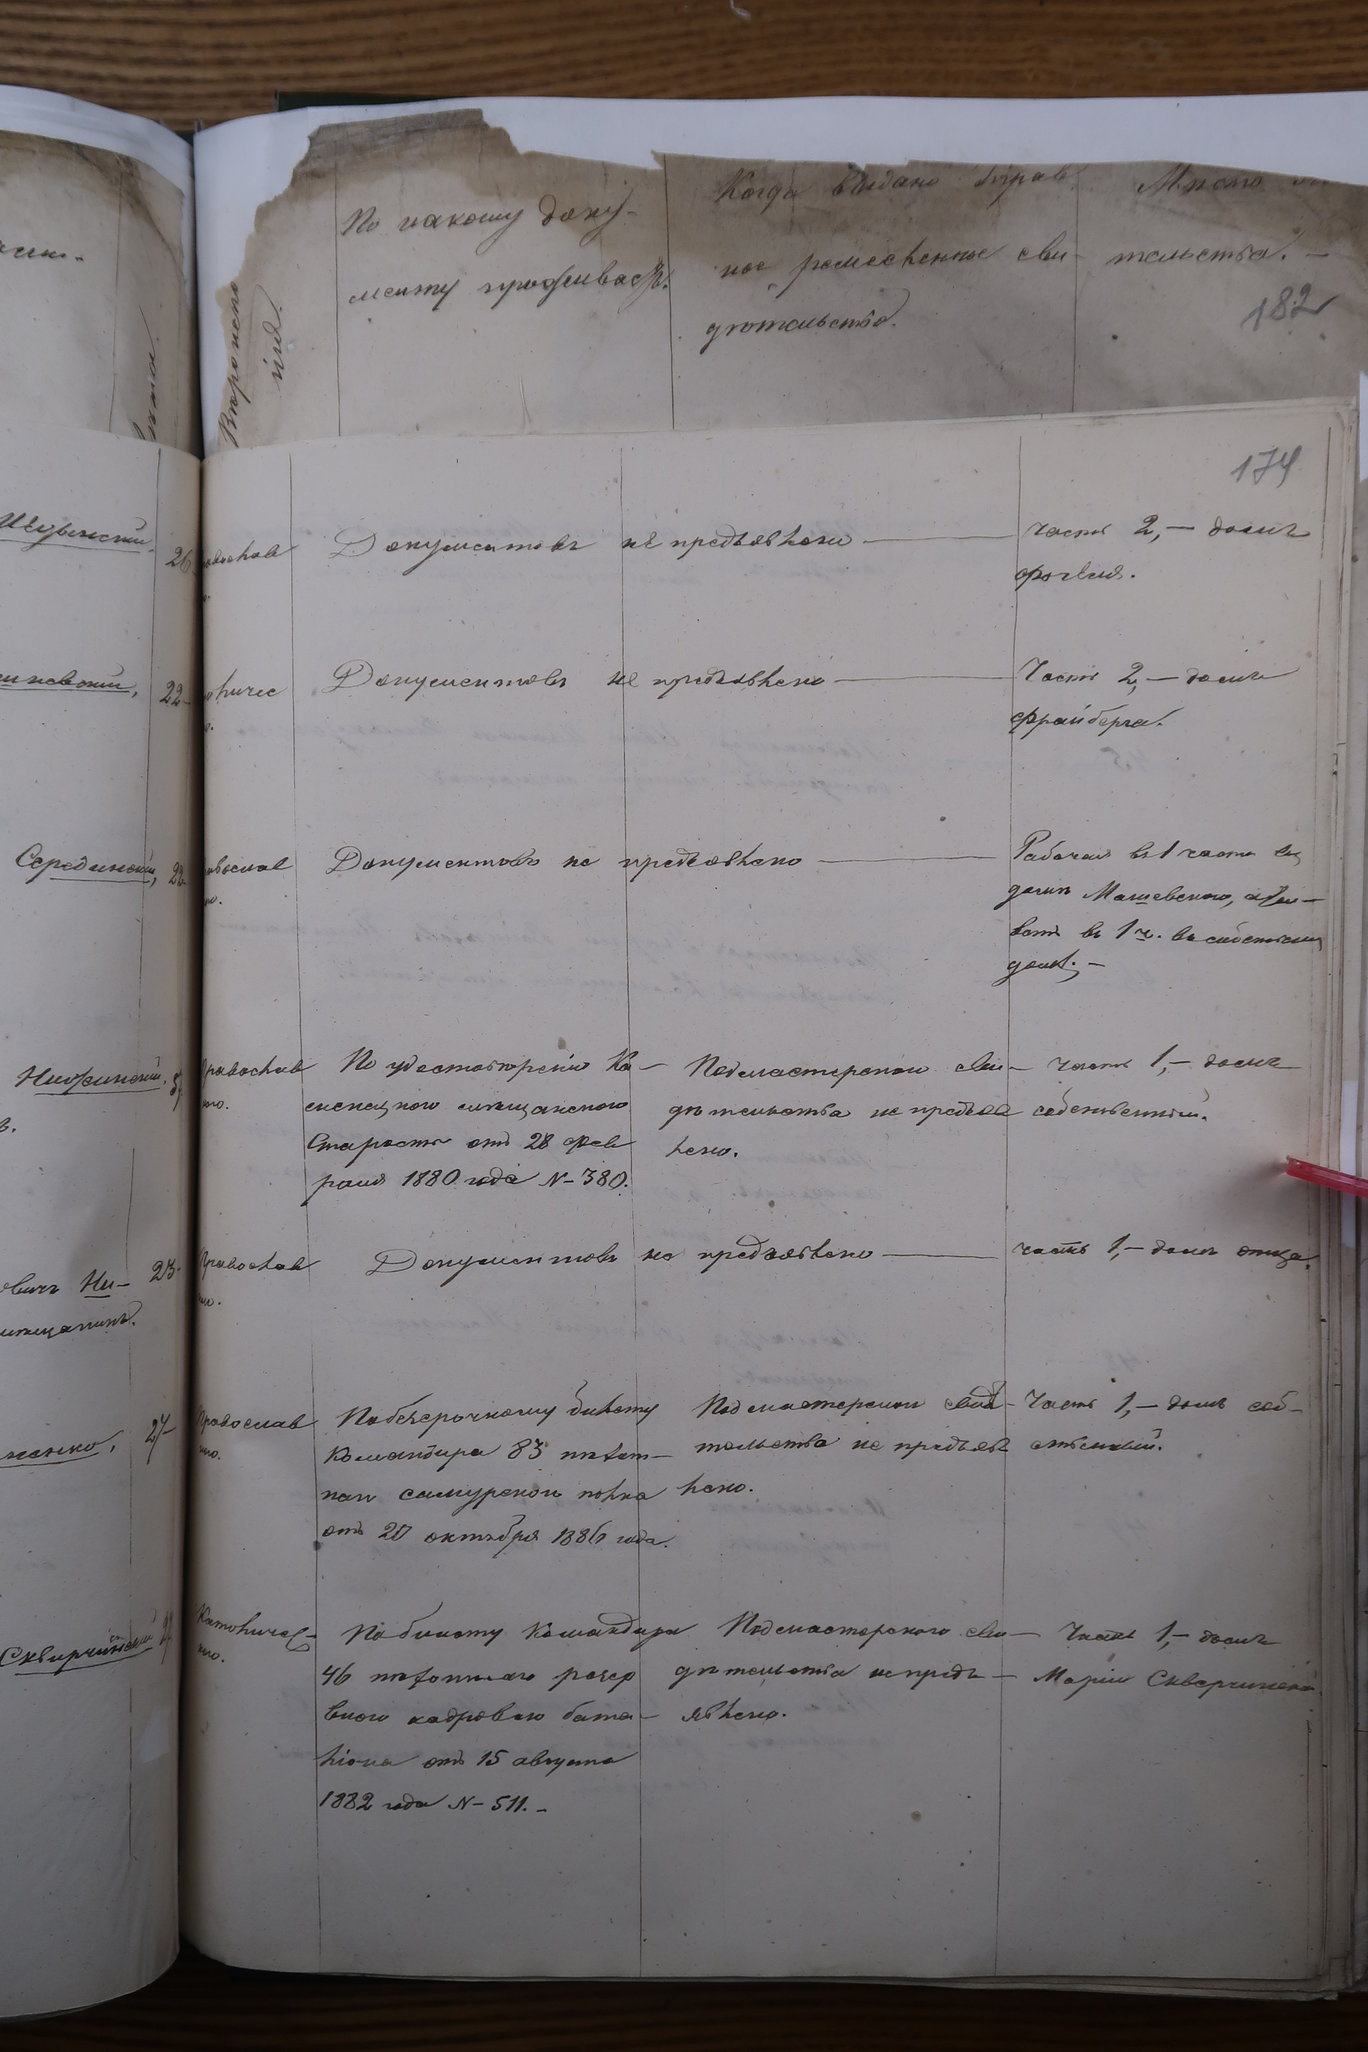 Вѣроиспо
нія.
По какому доку-
менту проживаетъ.
Когда выдано
ное ремесленное сви-
дѣтельство.
Мѣсто
тельства. —
182
174
26
авослав
Документовъ не предъявлено ——
часть 2, — домъ
22
оличес
Документовъ не предъявлено ——
Часть 2, — домъ
Фрайберга.
Серединскій,
авослав
но.
Документовъ не предъявлено ——
Рабочая въ 1 части въ
домѣ Машевскаго, а жи-
ветъ въ 1 ч. въ собствен
домѣ. —
Нижинскій,
Православ
но.
По удостовѣренію Ка-
менецкого мѣщанского
Старосты отъ 28 фев
раля 1880 года N- 380.
Подмастерского сви-
дѣтельства не предъяв
лено.
часть 1, — домъ
собственный.
овичъ Ни-
мѣщанинъ.
23.
Православ
но.
Документовъ не предъявлено ——
часть 1, — домъ отца.
ченко,
27
Православ
но.
По безсрочному билету
Командира 83 пѣхот-
наго Самурского полка
отъ 20 октября 1886 года.
Подмастерского свидѣ-
тельства не предъяв
лено.
Часть 1, — домъ соб-
ственный.
Скварчинскій
Католичес-
но.
По билету Командира
46 пѣхотнаго резер
внаго кадроваго бата-
ліона отъ 15 августа
1882 года N- 511. -
Подмастерского сви-
дѣтельства не предъ-
явлено.
Часть 1, — домъ
Маріи Скварчинско